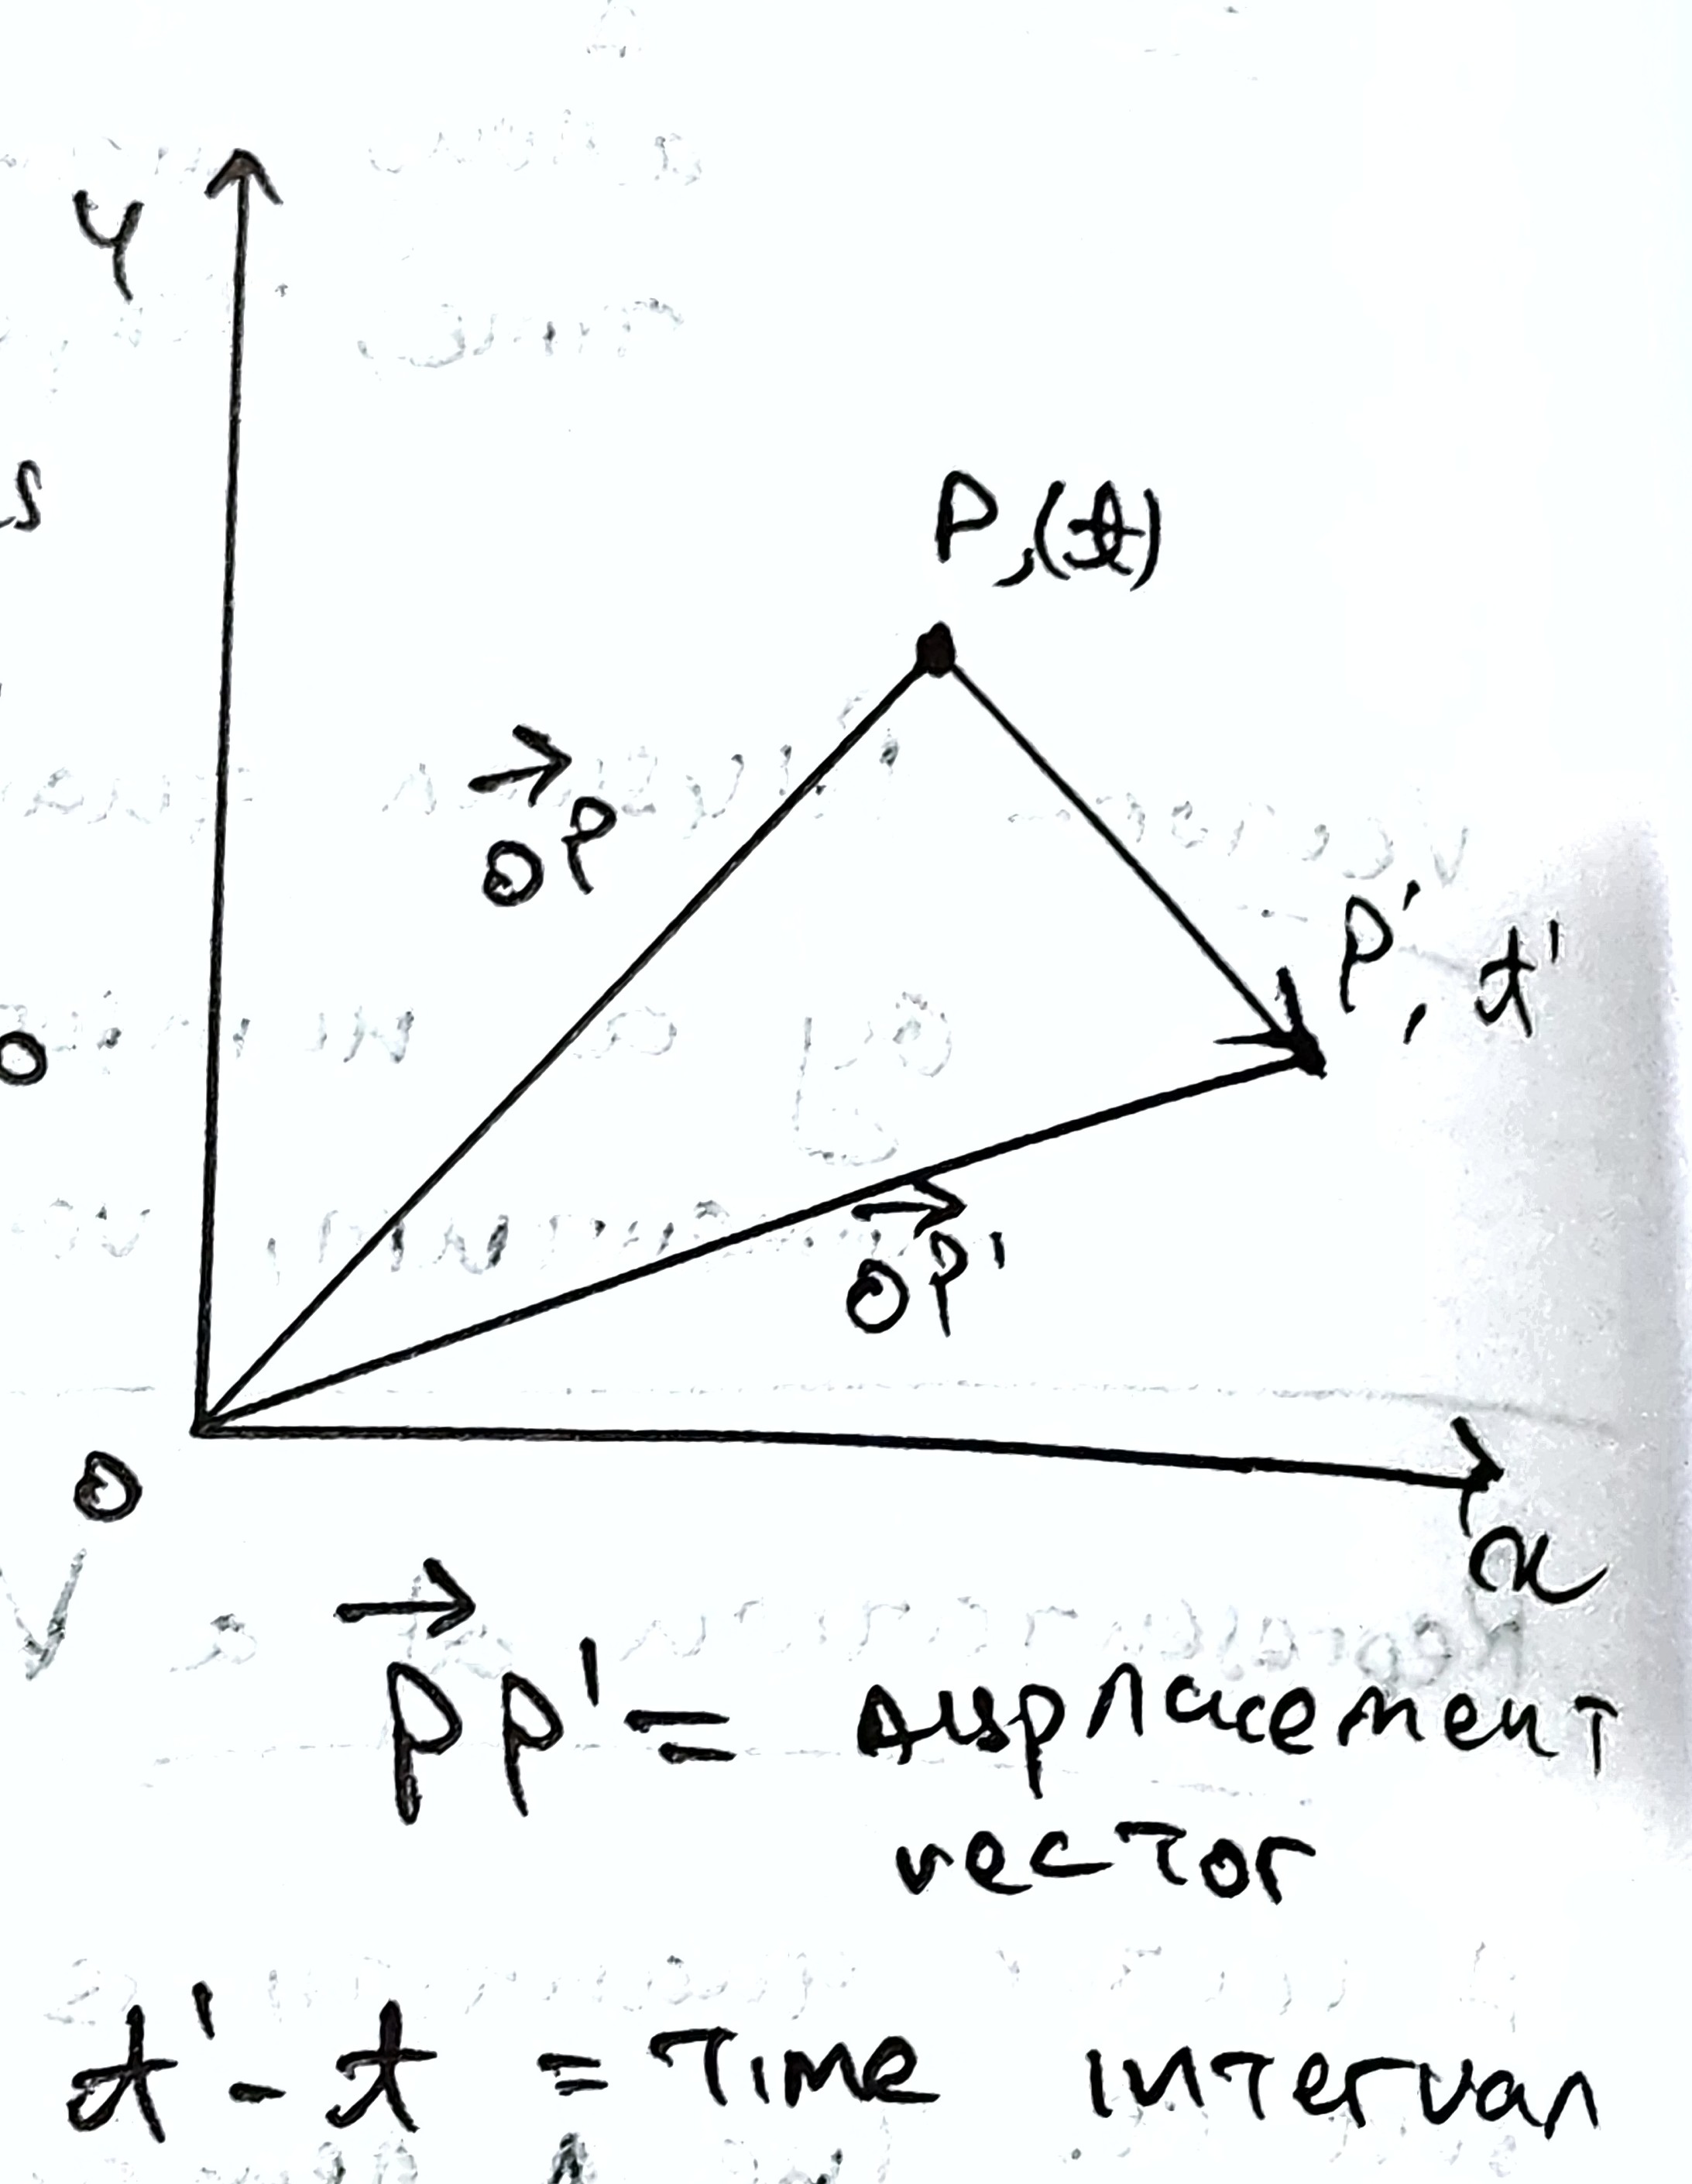 Y
s
P,(t)
→
OP
P', t'
o
→
OP'
O
x
→
PP' = displacement
vector
t' - t = Time interval